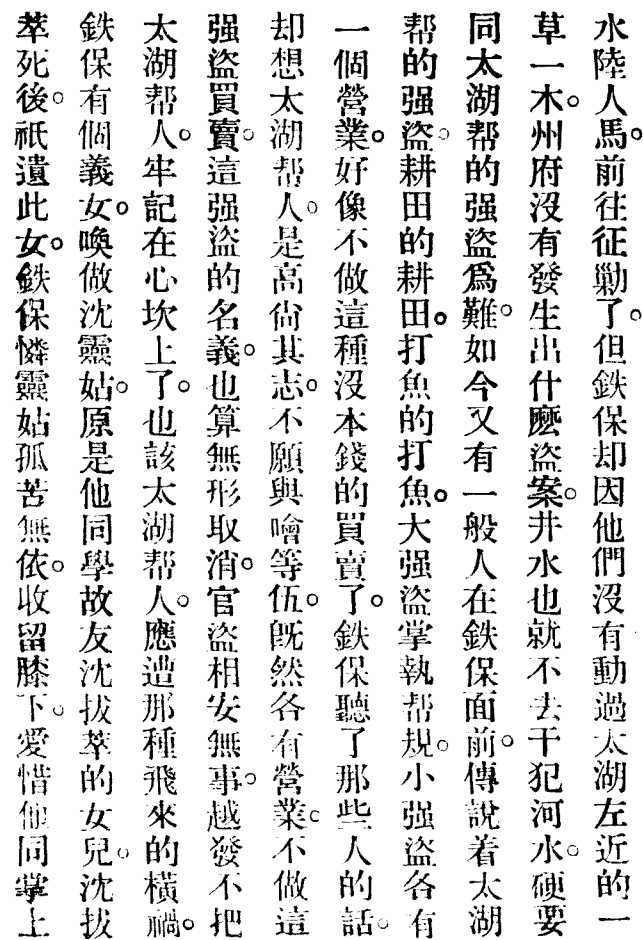 水陸人馬。前往征勦了。但鉄保却因他們沒有動過太湖左近的一
草一木。州府沒有發生出什麽盜案。井水也就不去干犯河水。硬要
同太湖帮的强盜爲難。如今又有一般人在鉄保面前。傳說着太湖
帮的强盜。耕田的耕田。打魚的打魚。大强盜掌執帮規。小强盜各有
一個營業。好像不做這種沒本錢的買賣了。鉄保聽了那些人的話。
却想太湖帮人。是高尙其志。不願與噲等伍。旣然各有營業。不做這
强盜買賣。這强盜的名義。也算無形取消。官盜相安無事。越發不把
太湖帮人。牢記在心坎上了。也該太湖帮人。應遭那種飛來的橫禍。
鉄保有個義女。喚做沈靈姑。原是他同學故友沈拔萃的女兒。沈拔
萃死後。祇遺此女。鉄保憐靈姑孤苦無依。收留膝下。愛惜他同掌上